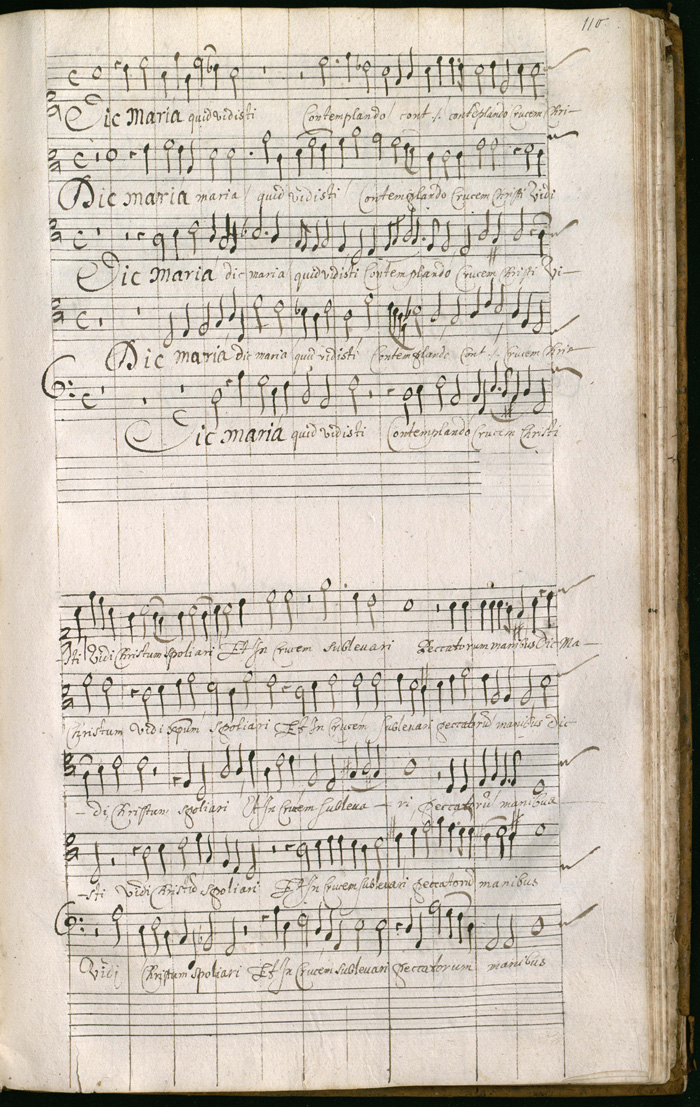 110
Dic Maria quid vidisti Contemplando cont ./. contēplando Crucem Chri-
Dic maria maria quid vidisti Contemplando Crucem Christi Vidi
Dic Maria dic maria quid vidisti Contemplando Crucem Christi Vi-
Dic maria dic maria quid vidisti Contemplando Cont ./. Crucem Chri-
Dic maria quid vidisti Contemplando Crucem Christi
-sti Vidi Christum spoliari Et In Crucem sublevari Peccatorum manibus Dic Ma-
Christum vidi xpum spoliari Et In Crucem sublevari peccatorū manibus dic
-di Christum spoliari Et In Crucem subleva-ri peccatorū manibus
-sti vidi Christū spoliari Et In Crucem sublevari peccatorū manibus
Vidi Christum spoliari Et In Crucem sublevari peccatorum manibus